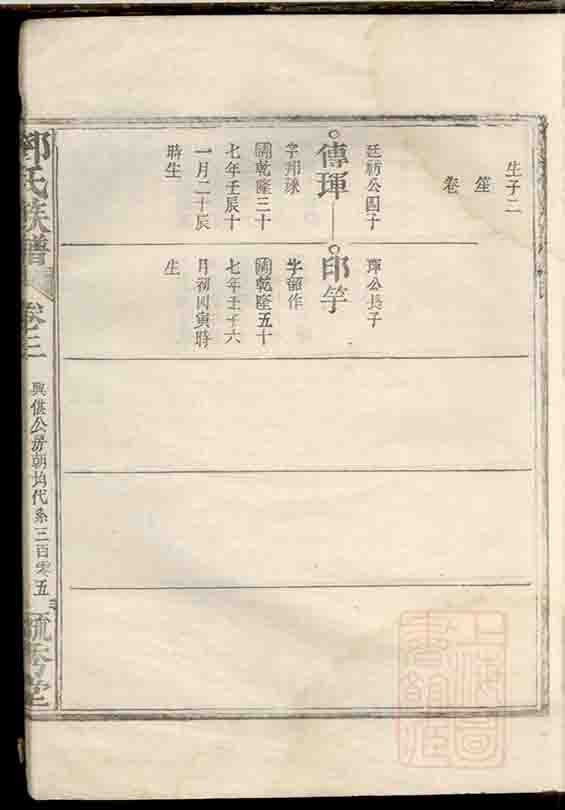 生子二
笙
廷紡公四子
傳琿
字邦球
國乾隆三十
七年壬辰十
一月二十辰
時生
琿公長子
印竽
字韶作
國乾隆五十
七年壬子六
月初四寅時
生
氏族譜
卷之三
公房朝均代系三百零五
毓秀堂
上海圖書館藏